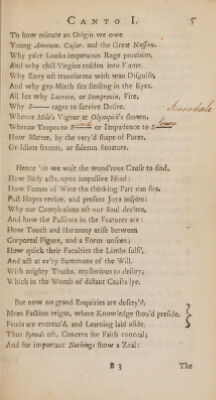 CANTO I. 5
To how minute an Origin we owe
Young Ammon, Cæsar, and the Great Nassau.
Why paler Looks impetuous Rage proclaim,
And why chill Virgins redden into Flame.
Why Envy oft transforms with wan Disguise,
And why gay Mirth sits smiling in the Eyes.
All Ice why Lucrece, or Sempronia, Fire,
Why S—— rages to survive Desire.
Scarsdale
Whence Milo's Vigour at Olympick's shown,
Whence Tropes to F—— or Impudence to S——
How Matter, by the vary'd shape of Pores,
Or Idiots frames, or solemn Senators.
Hence 'tis we wait the wond'rous Cause to find,
How Body acts upon impassive Mind:
How Fumes of Wine the thinking Part can fire,
Past Hopes revive, and present Joys inspire:
Why our Complexions oft our Soul declare,
And how the Passions in the Features are:
How Touch and Harmony arise between
Corporeal Figure, and a Form unseen;
How quick their Faculties the Limbs fulfil,
And act at ev'ry Summons of the Will.
With mighty Truths, mysterious to descry,
Which in the Womb of distant Causes lye.
But now no grand Enquiries are descry'd,
Mean Faction reigns, where Knowledge shou'd preside,
Feuds are encreas'd, and Learning laid aside.
Thus Synods oft, Concern for Faith conceal;
And for important Nothings show a Zeal:
B 3 The